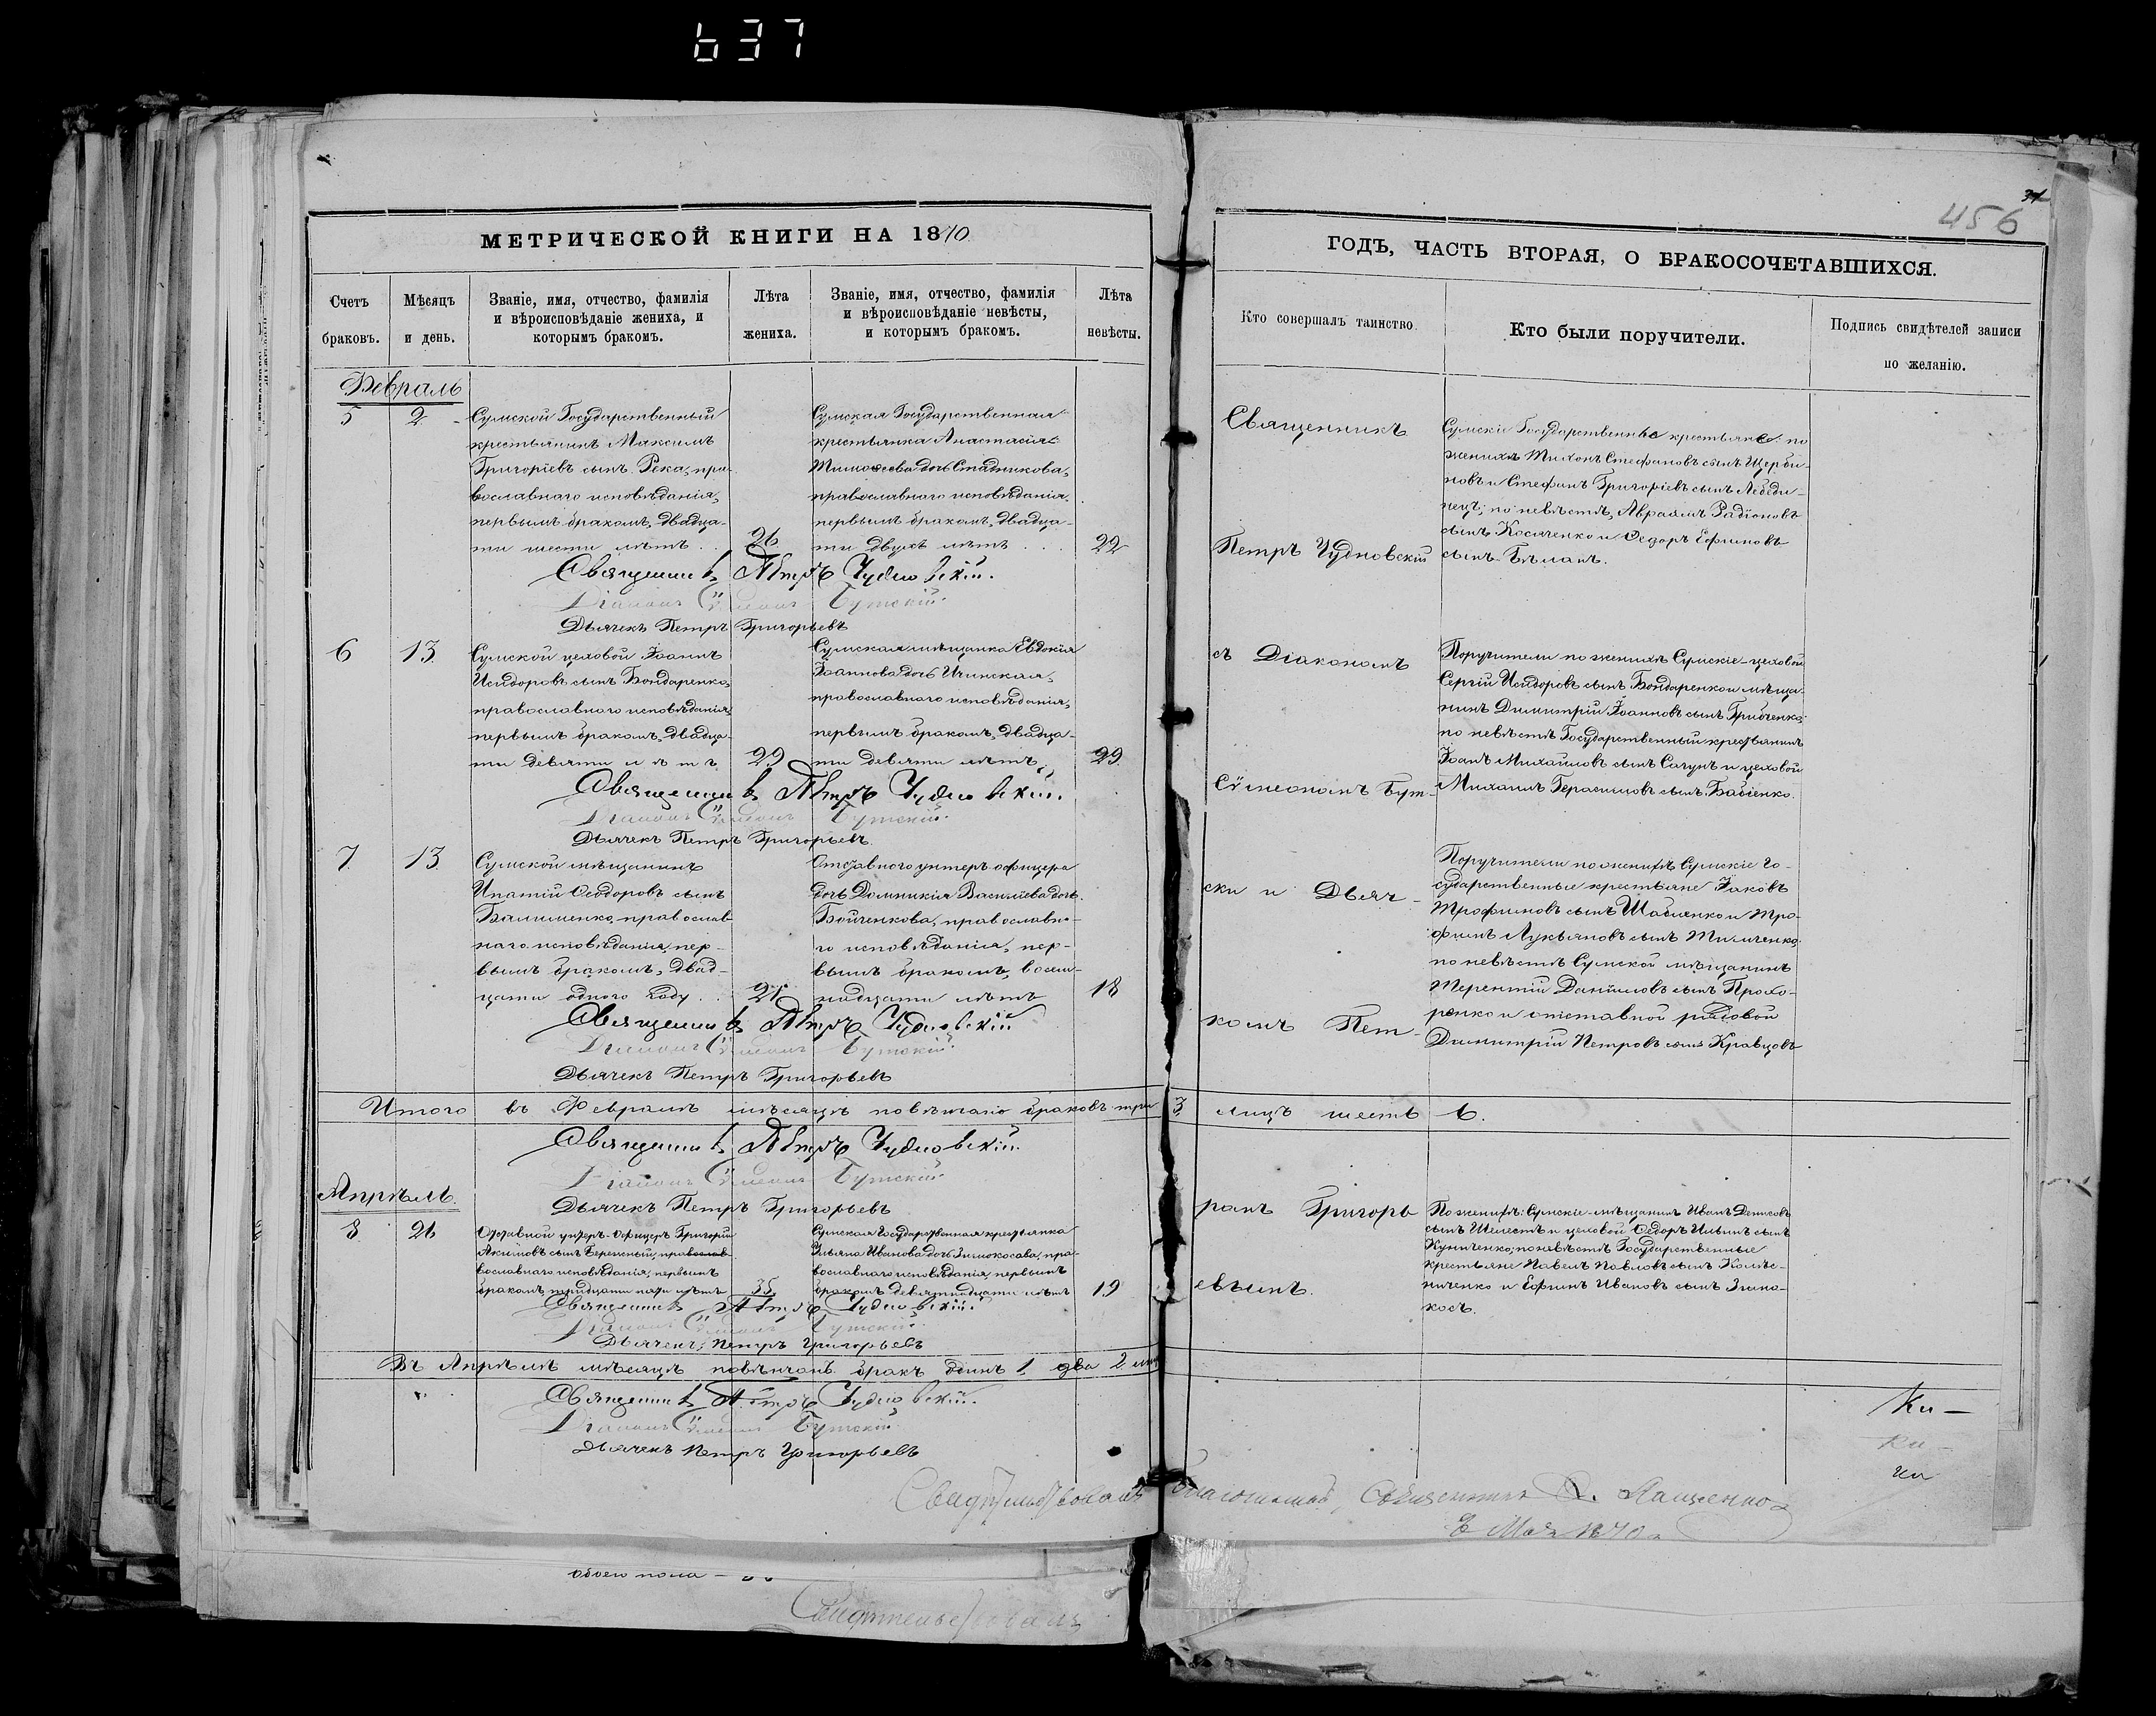 637
34
456
МЕТРИЧЕСКОЙ КНИГИ НА 1870
ГОДЪ, ЧАСТЬ ВТОРАЯ, О БРАКОСОЧЕТАВШИХСЯ.
Счетъ браковъ.
Мѣсяцъ и день.
Званіе, имя, отчество, фамилія
и вѣроисповѣданіе жениха, и
которымъ бракомъ.
Лѣта жениха.
Званіе, имя, отчество, фамилія
и вѣроисповѣданіе невѣсты,
и которымъ бракомъ.
Лѣта невѣсты.
Кто совершалъ таинство.
Кто были поручители.
Подпись свидѣтелей записи
по желанію.
Февраль
5
2
Сумской Государственный
крестьянинъ Максимъ
Григоріевъ сынъ Река, пра-
вославнаго исповѣданія,
первымъ бракомъ, двадца-
ти шести лѣтъ
26
Сумская Государственная
крестьянка Анастасія
Тимоѳеева дочь Стадникова,
православнаго исповѣданія,
первымъ бракомъ, двадца-
ти двухъ лѣтъ
22
Священникъ
Петръ Чудновскій
Сумскіе Государственные крестьяне: по
женихѣ Тихонъ Стефановъ сынъ Щерби-
новъ и Стефанъ Григоріевъ сынъ Лебеди-
нецъ; по невѣстѣ, Авраамъ Радіоновъ
сынъ Косаченко и Ѳедоръ Ефимовъ
сынъ Бѣланъ.
Священникъ Петръ Чудновскій.
Діаконъ Сѵмеонъ Бутскій.
Дьячекъ Петръ Григорьевъ
6
13
Сумской цеховой Іоаннъ
Исидоровъ сынъ Бондаренко,
православнаго исповѣданія,
первымъ бракомъ, двадца-
ти девяти лѣтъ
29
Сумская мѣщанка Евдокія
Іоаннова дочь Ичинская,
православнаго исповѣданія,
первымъ бракомъ, двадца-
ти девяти лѣтъ
29
съ Діакономъ
Сѵмеономъ Бут-
Поручители по женихѣ Сумскіе цеховой
Сергій Исидоровъ сынъ Бондаренко и мѣща-
нинъ Димитрій Іоанновъ сынъ Грибченко;
по невѣстѣ Государственный крестьянинъ
Іоанъ Михайловъ сынъ Сагунъ и цеховой
Михаилъ Герасимовъ сынъ Бабіенко.
Священникъ Петръ Чудновскій.
Діаконъ Сѵмеонъ Бутскій.
Дьячекъ Петръ Григорьевъ.
7
13
Сумской мѣщанинъ
Ипатій Ѳеодоровъ сынъ
Балименко, православ-
наго исповѣданія, пер-
вымъ бракомъ, двад-
цати одного году
21
Отставного унтеръ офицера
дочь Домникія Василіева дочь
Бойченкова, православна-
го исповѣданія, пер-
вымъ бракомъ, восем-
надцати лѣтъ
18
ски и Дьяч-
комъ Пет-
Поручители по женихѣ Сумскіе го-
сударственные крестьяне Іаковъ
Трофимовъ сынъ Шаблянко и Тро-
фимъ Лукьяновъ сынъ Тимченко;
по невѣстѣ Сумской мѣщанинъ
Терентій Даніиловъ сынъ Прохо-
ренко и отставной рядовой
Димитрій Петровъ сынъ Кравцовъ
Священникъ Петръ Чудновскій
Діаконъ Сѵмеонъ Бутскій.
Дьячекъ Петръ Григорьевъ
Итого въ Февралѣ мѣсяцѣ повѣнчано браковъ три 3. лицъ шесть 6.
Священникъ Петръ Чудновскій.
Діаконъ Сѵмеонъ Бутскій
Дьячекъ Петръ Григорьевъ
Апрѣль.
8
26
Отставной унтеръ-Офицеръ Григорій
Акимовъ сынъ Бережный, православ-
вославнаго исповѣданія, первымъ
бракомъ, тридцати пяти лѣтъ
35
Сумская Государственная крестьянка
Ульяна Иванова дочь Зимокосова, пра-
вославнаго исповѣданія, первымъ
бракомъ девятнадцати лѣтъ
19
ромъ Григорь
евымъ.
По женихѣ: Сумскіе мѣщанинъ Иванъ Денисовъ
сынъ Шелестъ и цеховой Ѳедоръ Ильинъ сынъ
Куниченко; по невѣстѣ Государственные
крестьяне Павелъ Павловъ сынъ Колес-
ниченко и Ефимъ Ивановъ сынъ Зимо-
косъ.
Священникъ Петръ Чудновскій.
Діаконъ Сѵмеонъ Бутскій.
Дьячекъ Петръ Григорьевъ
Въ Апрѣлѣ мѣсяцѣ повѣнчанъ бракъ одинъ 1, два 2 лица
Священникъ Петръ Чудновскій.
Діаконъ Сѵмеонъ Бутскій.
Дьячекъ Петръ Григорьевъ
Ки-
ки-
ки
Свидѣтельствовалъ Благочинный, Священникъ Лащенко
Мая 1870
обоего пола
Свидѣтельствовалъ